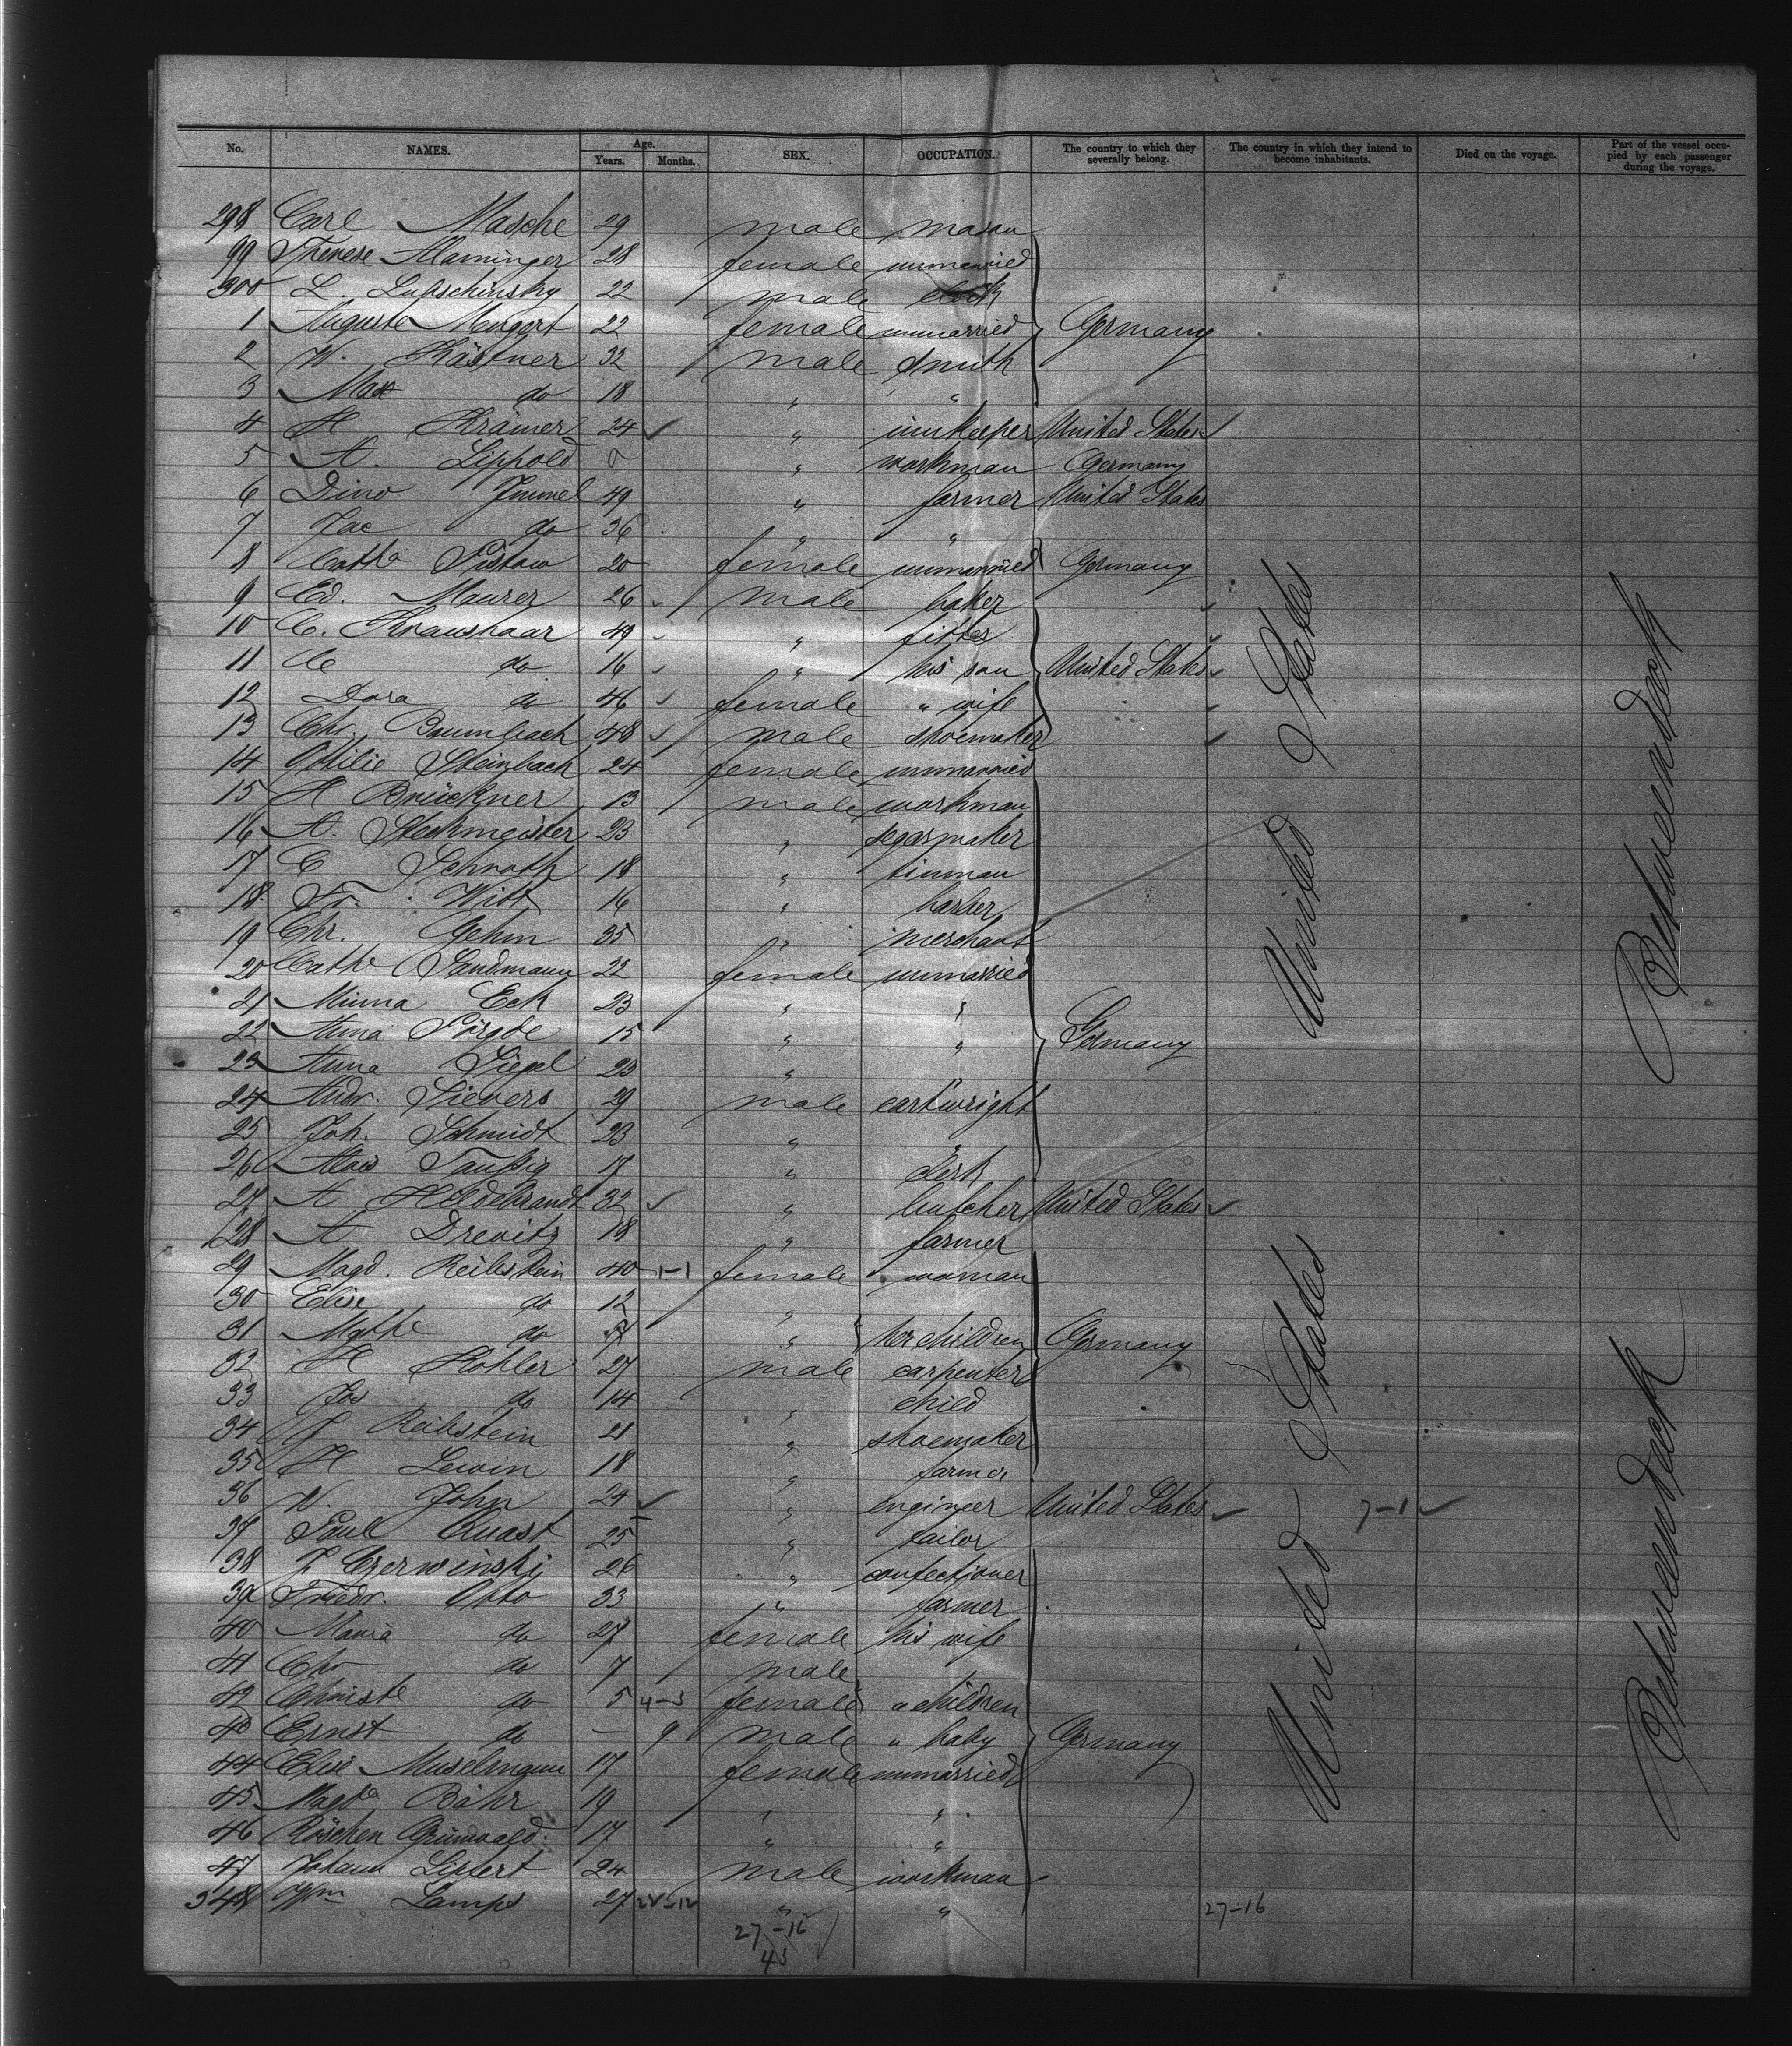 No. NAMES. Age. Years. Months. SEX. OCCUPATION. The country to which they severally belong. The country in which they intend to become inhabitants. Died on the voyage. Part of the vessel occupied by each passenger during the voyage.
298 Carl Masche 29 male mason
99 Therese Maminger 28 female unmarried
300 L. Lupschinsky 22 male clerk
1 Auguste Mengert 22 female unmarried Germany
2 W. Kästner 32 male smith
3 Max do 18 " "
4 H Krämer 24 ✓ " innkeeper United States ✓
5 A. Lippold " workman Germany
6 Dino Jmmel 49 " farmer United States
7 Jac do 36 " "
8 Cathe Pistow 20 female unmarried Germany
9 Ed. Maurer 26 ✓ male baker ✓
10 C. Kraushaar 49 ✓ " fitter ✓
11 C do 16 ✓ " his son United States ✓
12 Dora do 46 ✓ female " wife ✓
13 Chr. Baumbach 48 ✓ male shoemaker ✓
14 Ottilie Steinbach 24 female unmarried
15 H Brückner 13 male workman
16 A. Steckmeister 23 " segarmaker
17 C Schroth 18 " tinman
18 Fr. Witt 16 " barber
19 Chr. Gehm 35 " merchant
20 Cathe Sandmann 22 female unmarried
21 Minna Eck 23 " "
22 Anna 15 " " Germany
23 Anna Siegel 23 " "
24 Andr. Sievers 29 male cartwright
25 Joh. Schmidt 23 " "
26 Alois Taußig 17 " clerk
27 A Hildebrandt 32 ✓ " butcher United States ✓
28 A Drevitz 18 " farmer
29 Magd. Reibstein 40 1-1 female woman
30 Elise do 12 "
31 Mathe do " her children Germany
32 H Kohler 27 male carpenter
33 Jos do 14 " child
34 J Reibstein 21 " shoemaker
35 H Lewin 18 " farmer
36 W. John 24 ✓ " engineer United States ✓ 7-1 ✓
37 Paul Quast 25 " tailor
38 J Czerwinski 26 " confectioner
39 Friedr. Otto 33 " farmer
40 Maria do 27 female his wife
41 Chr do 7 male
42 Christe do 5 4-3 female " children
43 Ernst do — 9 male " baby Germany
44 Elise Muselmann 17 female unmarried
45 Magda Bähr 19 " "
46 Röschen Grünwald 17 " "
47 Johann Lippert 24 male workman
348 Wm Lamps 27 " " 27-16
27-16
43
United States
United States
Betweendeck
Betweendeck